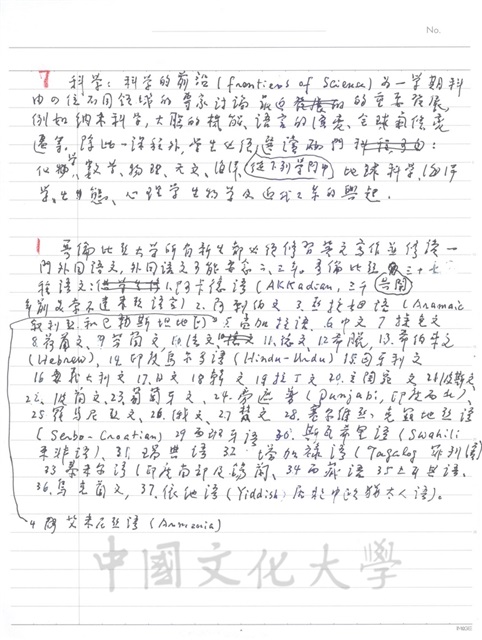 No.
7 科學：科學的前沿 (frontiers of Science) 為一學期科
由四位不同領域的專家討論最近的重要發展，
例如納米科學，大腦的機能、語言的演變、全球氣候變
遷等，除此一課程外，學生必須選讀兩門：
化學、數學、物理、天文、從下列學門中 地球科學、
學、生態、心理學生物學及
1 哥倫比亞大學所有新生都必須修習英文寫作並修讀一
門外國語文，外國語文可能為 一、二、三年。哥倫比亞 三十七
種語文：1. 阿卡德語 (AKKadian, 三千 公元
年前文學不達來語言) 2. 阿剌伯文 3. 亞拉姆語 (Aramaic
敘利亞和巴勒斯坦地區) 5. 孟加拉語、6 中文 7 捷克文
8. 荷蘭文、9 芬蘭文 10 法文 11. 德文 12 希臘，13. 希伯來文
(Hebrew)，14. 印度烏爾多語 (Hindu-Urdu) 15. 匈牙利文
16 意大利文 17. 日文 18 韓文 19 拉丁文 20. 文 21 波斯文
22、波蘭文、23 葡萄牙文、24. 旁遮普 (Punjabi, 印度西北)、
25 羅馬尼亞文、26. 俄文、27 梵文 28. 塞爾維亞、克羅地亞語
(Serbo-Croatian) 29 西班牙語 30. 斯瓦希里語 (Swahili
東非語)、31. 瑞典語 32 塔加祿語 (Tagalog 菲列濱)
33 泰米爾語 (印度南部及錫蘭、34 西藏語 35 土耳其語、
36. 烏克蘭文，37. 依地語 (Yiddish 居於中歐猶太人語)。
4 阿美尼亞語 (Armenia)
中國文化大學